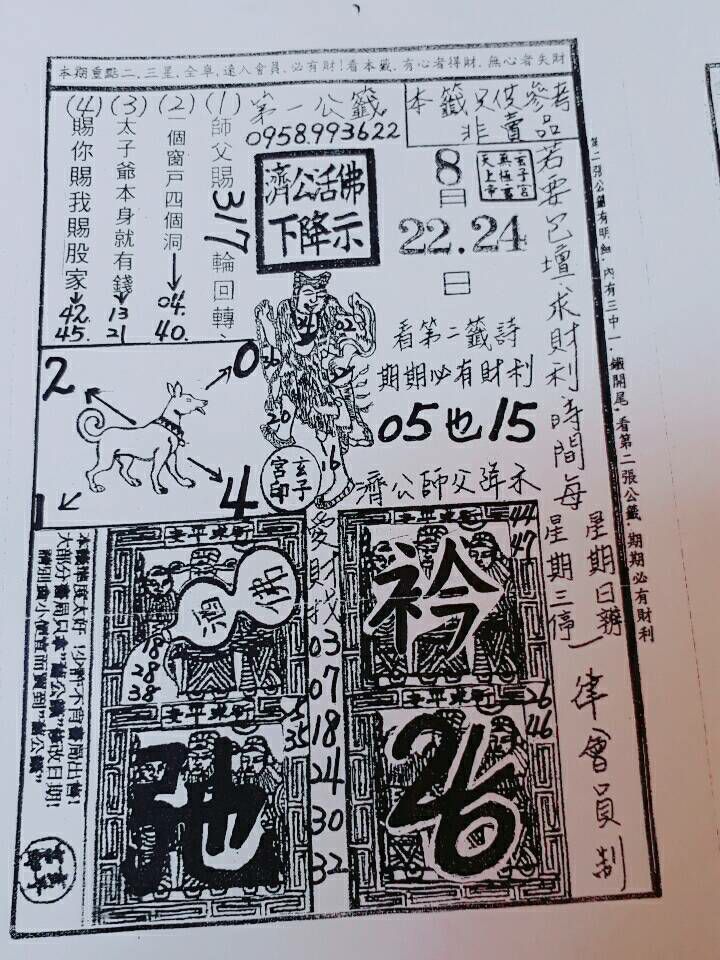 本期重點二、三星、全車、速入會員、必有財!看本籤、有心者得財、無心者失財
第一公籤
0958.993622
本籤只供參考
非賣品
(1)師父賜3/7輪回轉、
(2)一個窗戶四個洞→04.40.
(3)太子爺本身就有錢→13 21
(4)賜你賜我賜股家→42.45.
濟公活佛
下降示
8日
22.24日
玄子宮
天上帝
若要包壇求財利時間每星期日辦
星期三停
一律會員制
第二張公籤有明細、內有三中一、鐵開尾、看第二張公籤、期期必有財利
看第二籤詩
期期必有財利
05也15
濟公師父降示
2
0
1
4
20
16
玄子宮印
愛財找
03
07
18
24
30
32
新東平安
酒
佛
18
28
38
新東平安
衿
44
47
新東平安
弛
35
新東平安
26
26
46